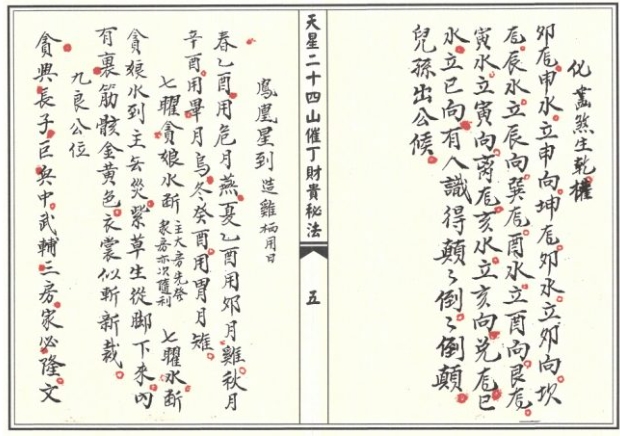 化煞生乾權
卯龙申水立申向坤龙卯水立卯向坎
龙辰水立辰向巽龙酉水立酉向艮龙
寅水立寅向离龙亥水立亥向兑龙巳
水立巳向有人識得顛々倒々倒顛
兒孫出公候
天星二十四山催丁財貴秘法
五
鳳凰星到 造雞栖用日
春乙酉用危月燕夏乙酉用卯月雞秋月
辛酉用畢月烏冬癸酉用胃月雉
七曜貪娘水斷 主大房先發 家房亦次隨利 七曜水斷
貪娘水到主云災紫草生從脚下來內
有裏筋骸金黃色衣裳似斬新裁
九良公位
貪與長子巨與中武輔三房家必隆文